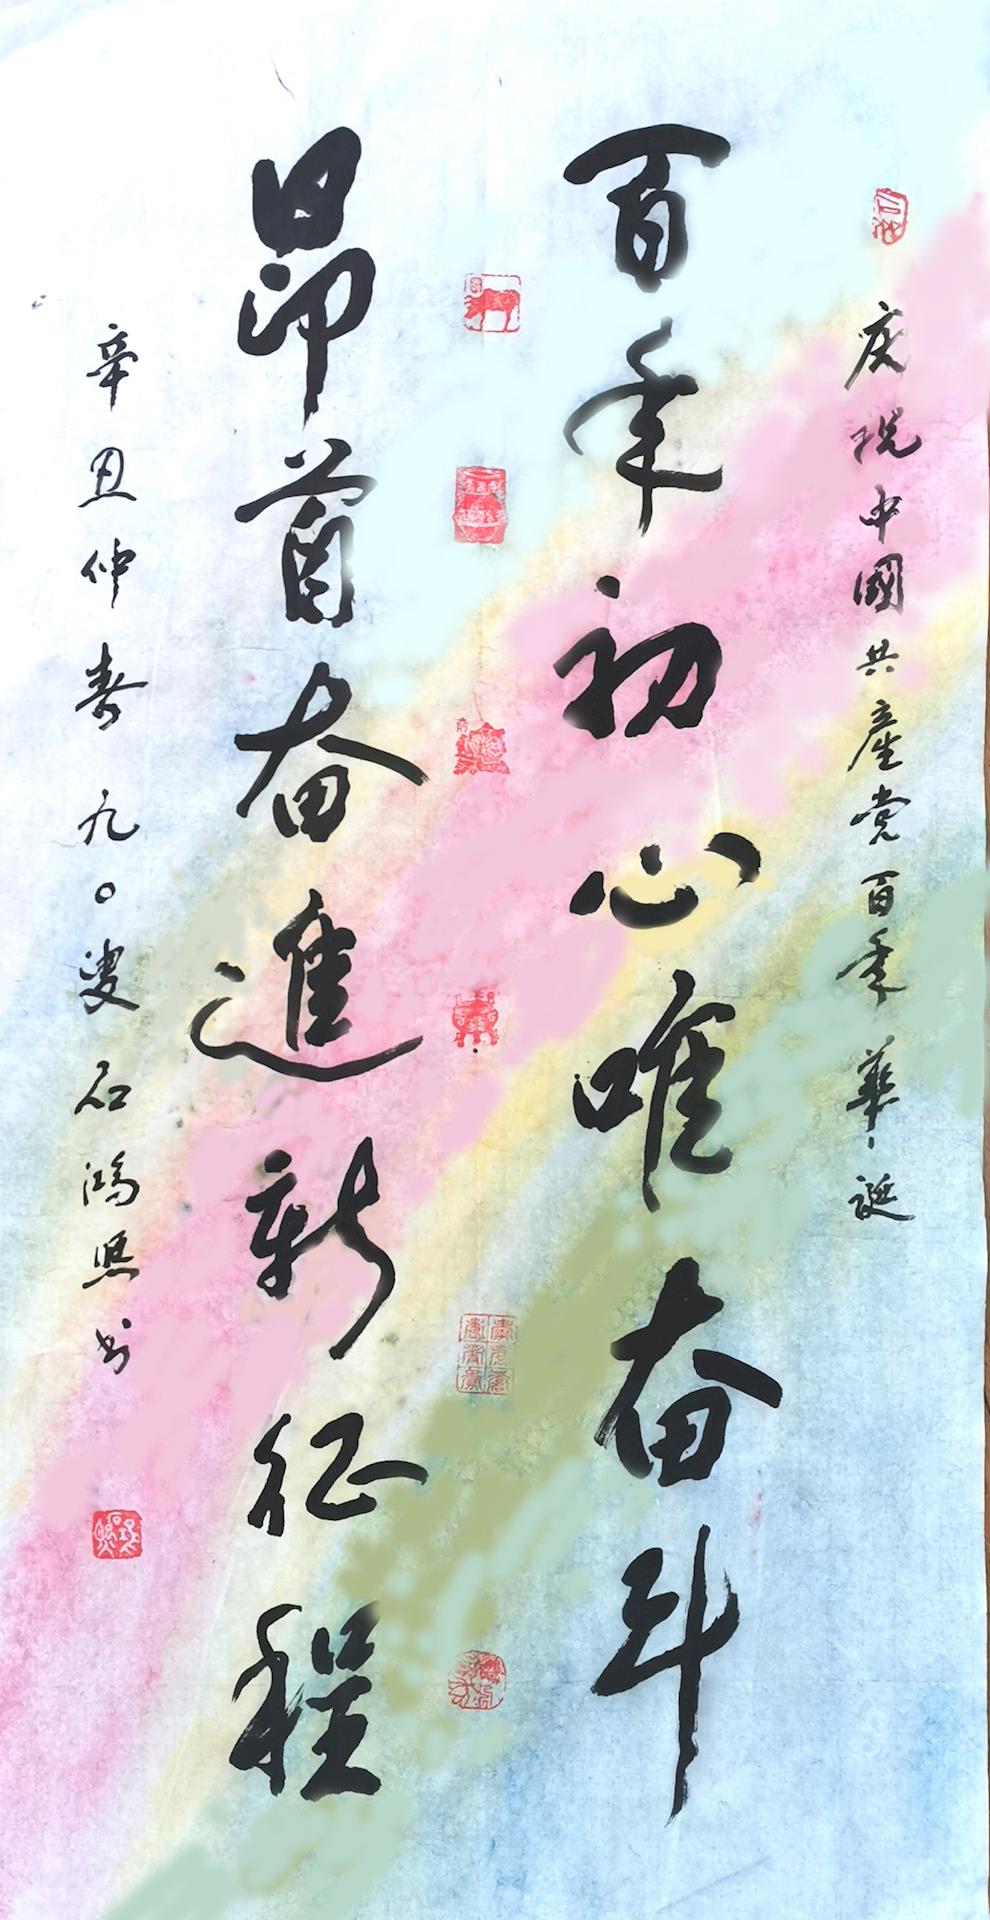 庆祝中國共產党百年華诞
百年初心唯奋斗
昂首奋進新征程
辛丑仲春九〇叟石鴻熙书